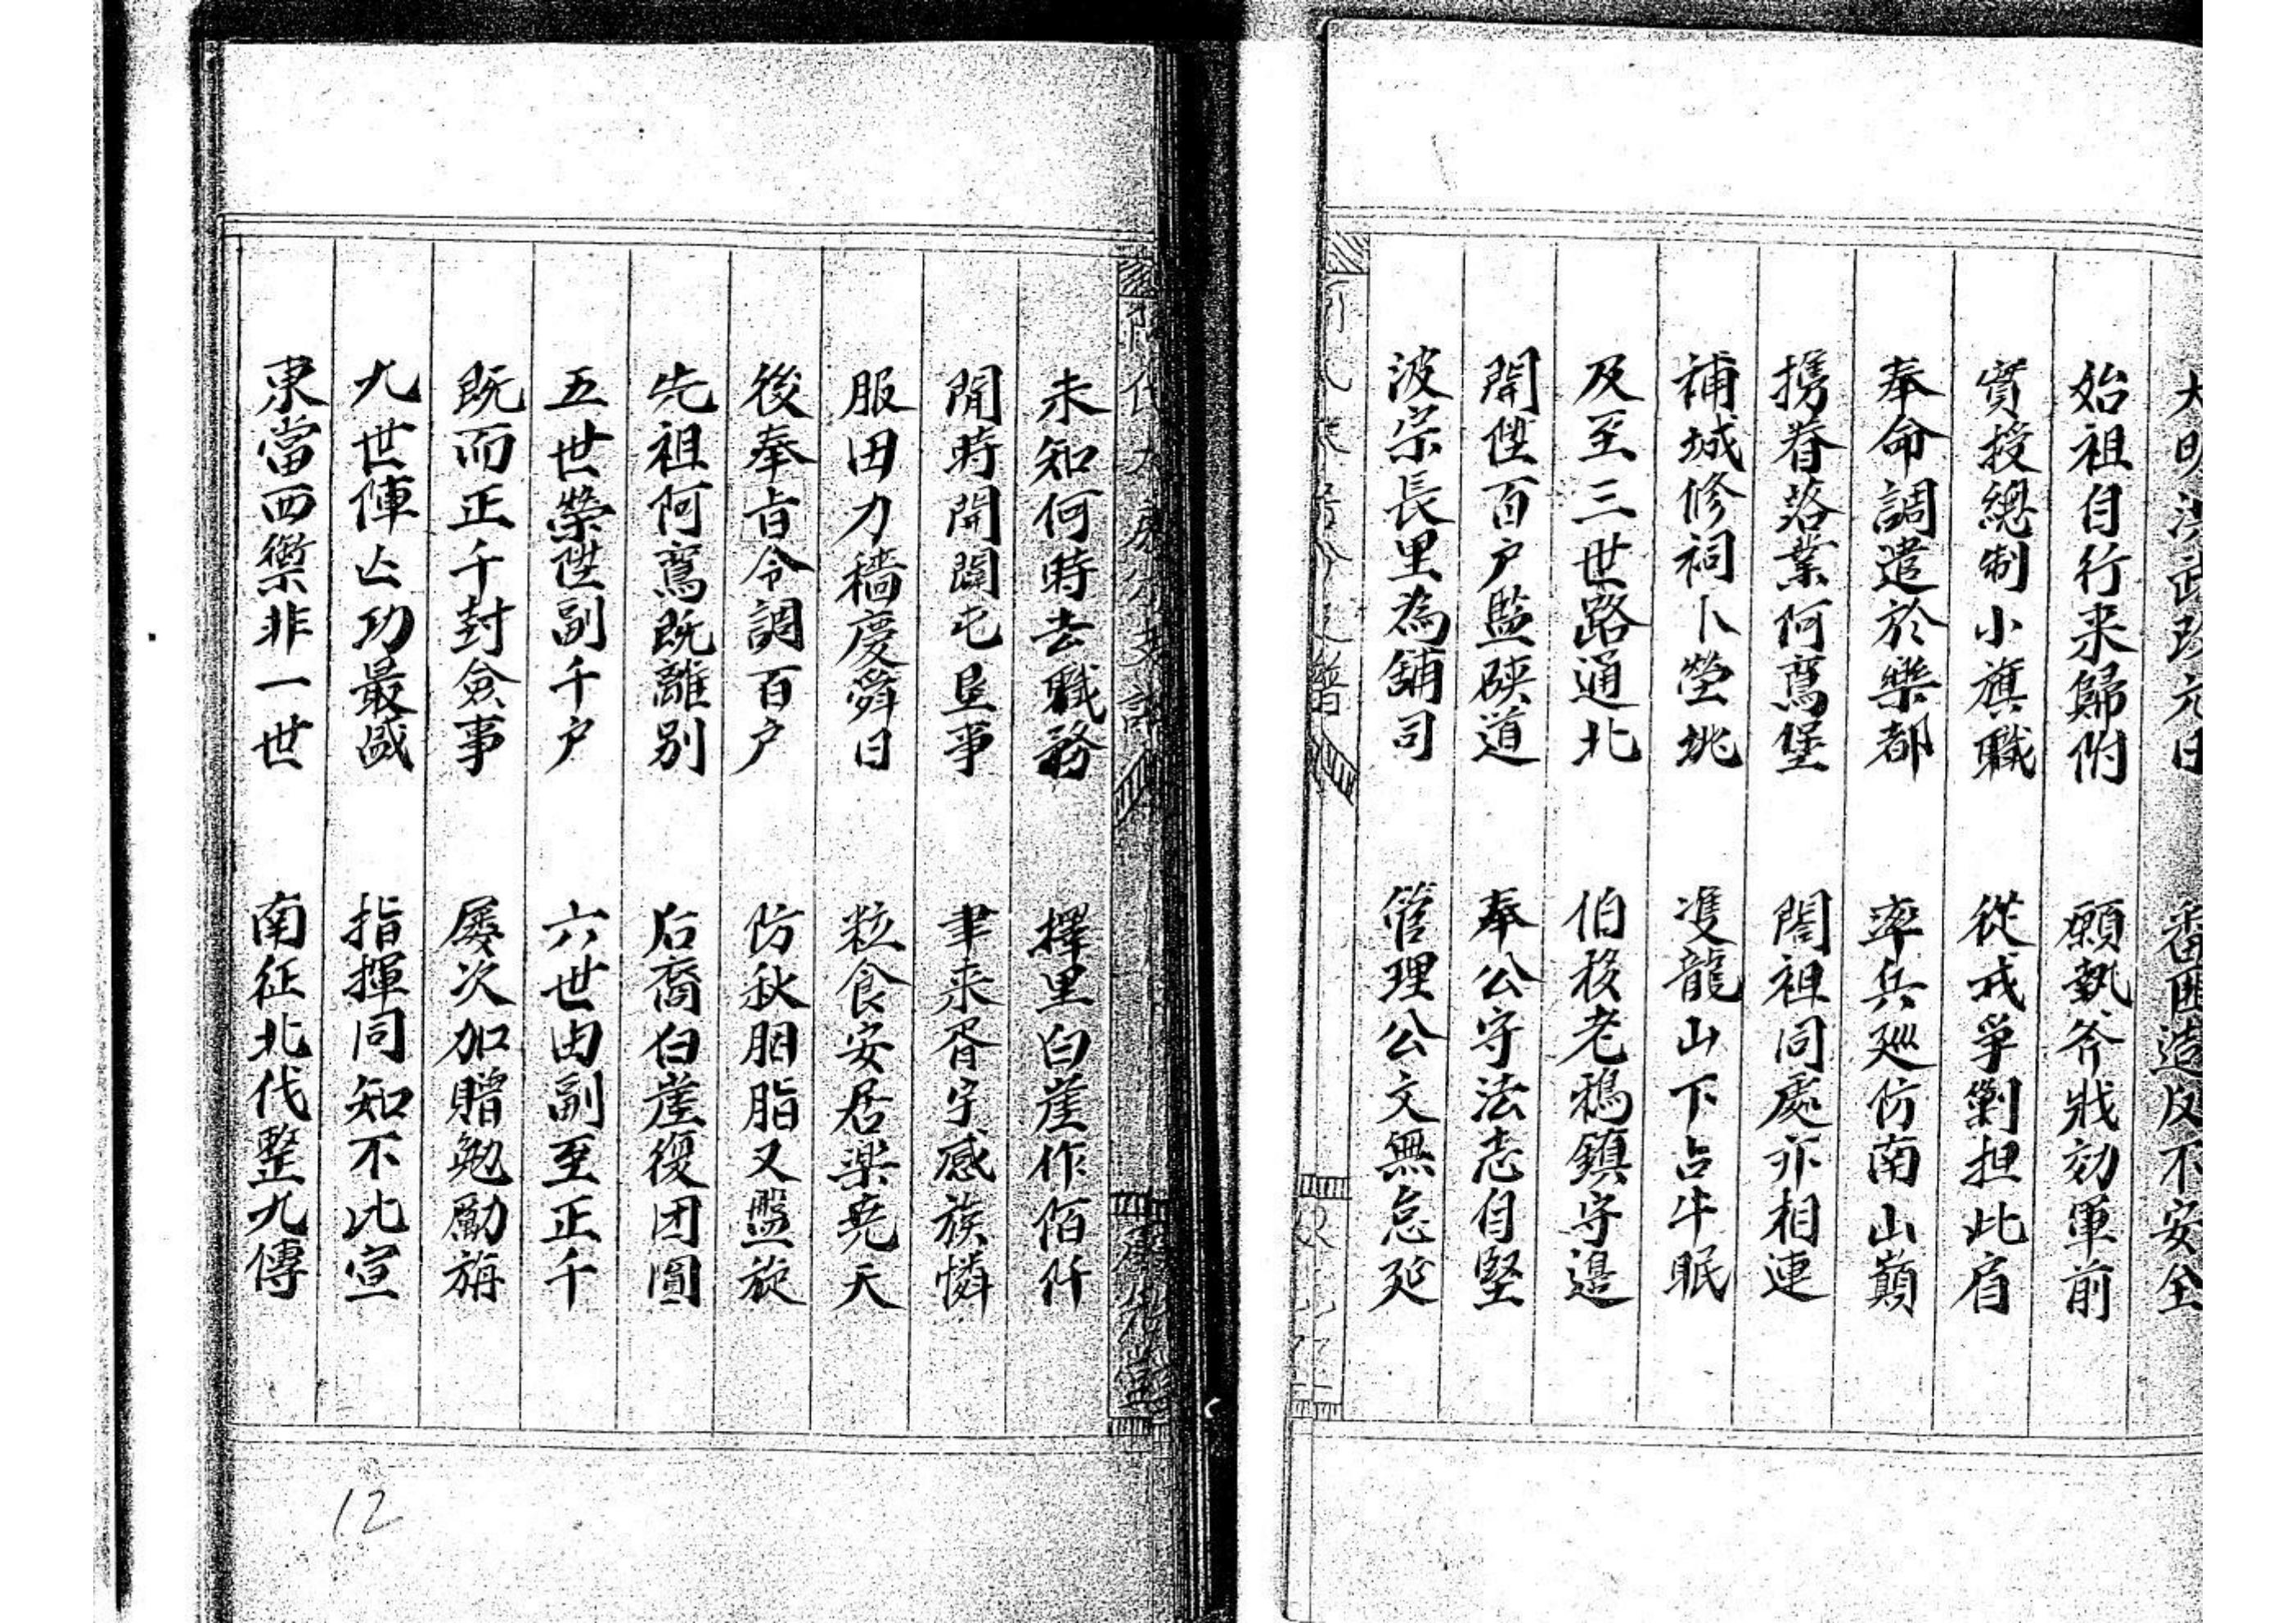 大明洪武改元日 番匪造反不安全
始祖自行来歸附 願執斧戕効軍前
實授總制小旗職 從戎爭剿担此肩
奉命調遣於樂都 率兵廵防南山巔
携眷落業阿鸞堡 閤祖同處亦相連
補城修祠卜塋垗 雙龍山下占牛眠
及至三世路通北 伯移老鴉鎮守邉
開陞百户監硤道 奉公守法志自堅
波宗長里為舖司 管理公文無怠延
未知何時去職務 擇里白崖作佰仟
閒時開闢屯垦事 聿来胥宇感族憐
服田力穡慶舜日 粒食安居楽堯天
後奉旨令調百户 防秋胭脂又盤旋
先祖阿鸞既離別 后裔白崖復团圓
五世榮陞副千户 六世由副至正千
既而正千封僉事 屡次加贈勉勵旃
九世陣亡功最盛 指揮同知不比宣
東當西禦非一世 南征北伐整九傳
12